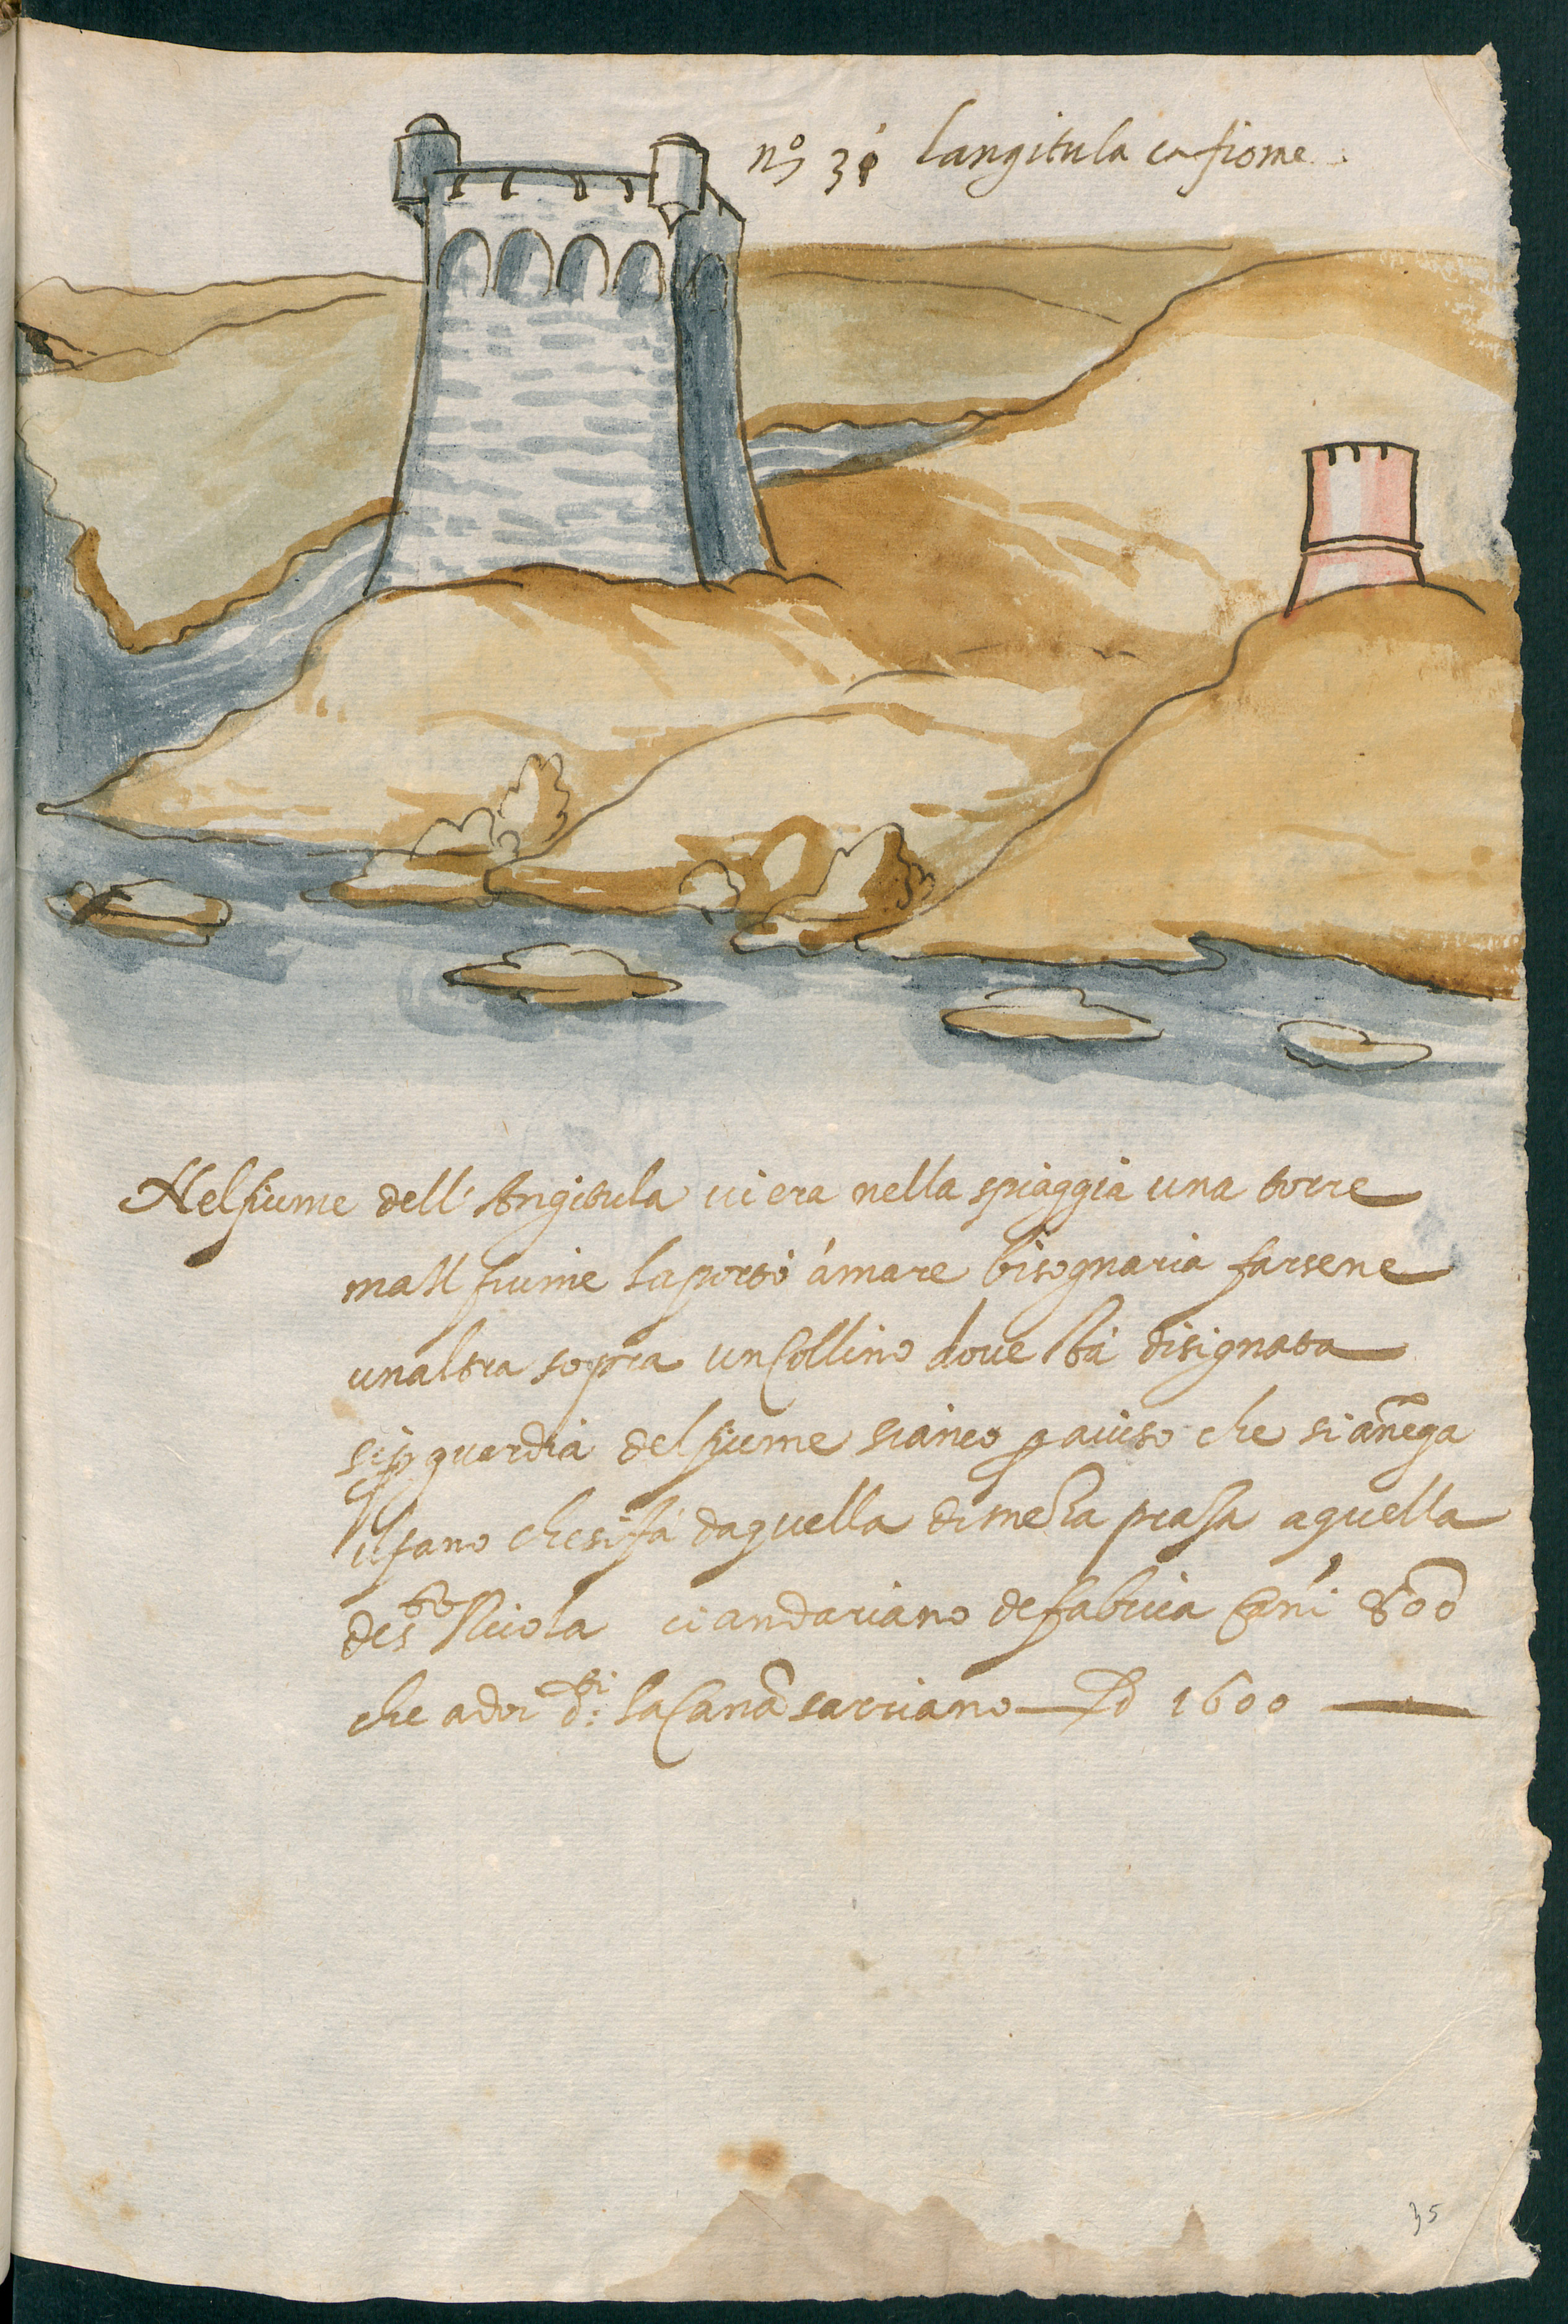 nº 31 langitula ca fiome
Nel fiume dell'Angitula ui era nella spiaggia una torre
ma il fiume la portò á mare bisognaria farsene
unaltra sopra un Collino dove stà disignata
si p guardia del fiume sianco p auiso che si anega
il fano che si fà da quella di meza prasa a quella
de s.ta Niciola ci andariano de fabrica Canni 800
che a doi d.ti la Canna sarriano — D 1600 —
35